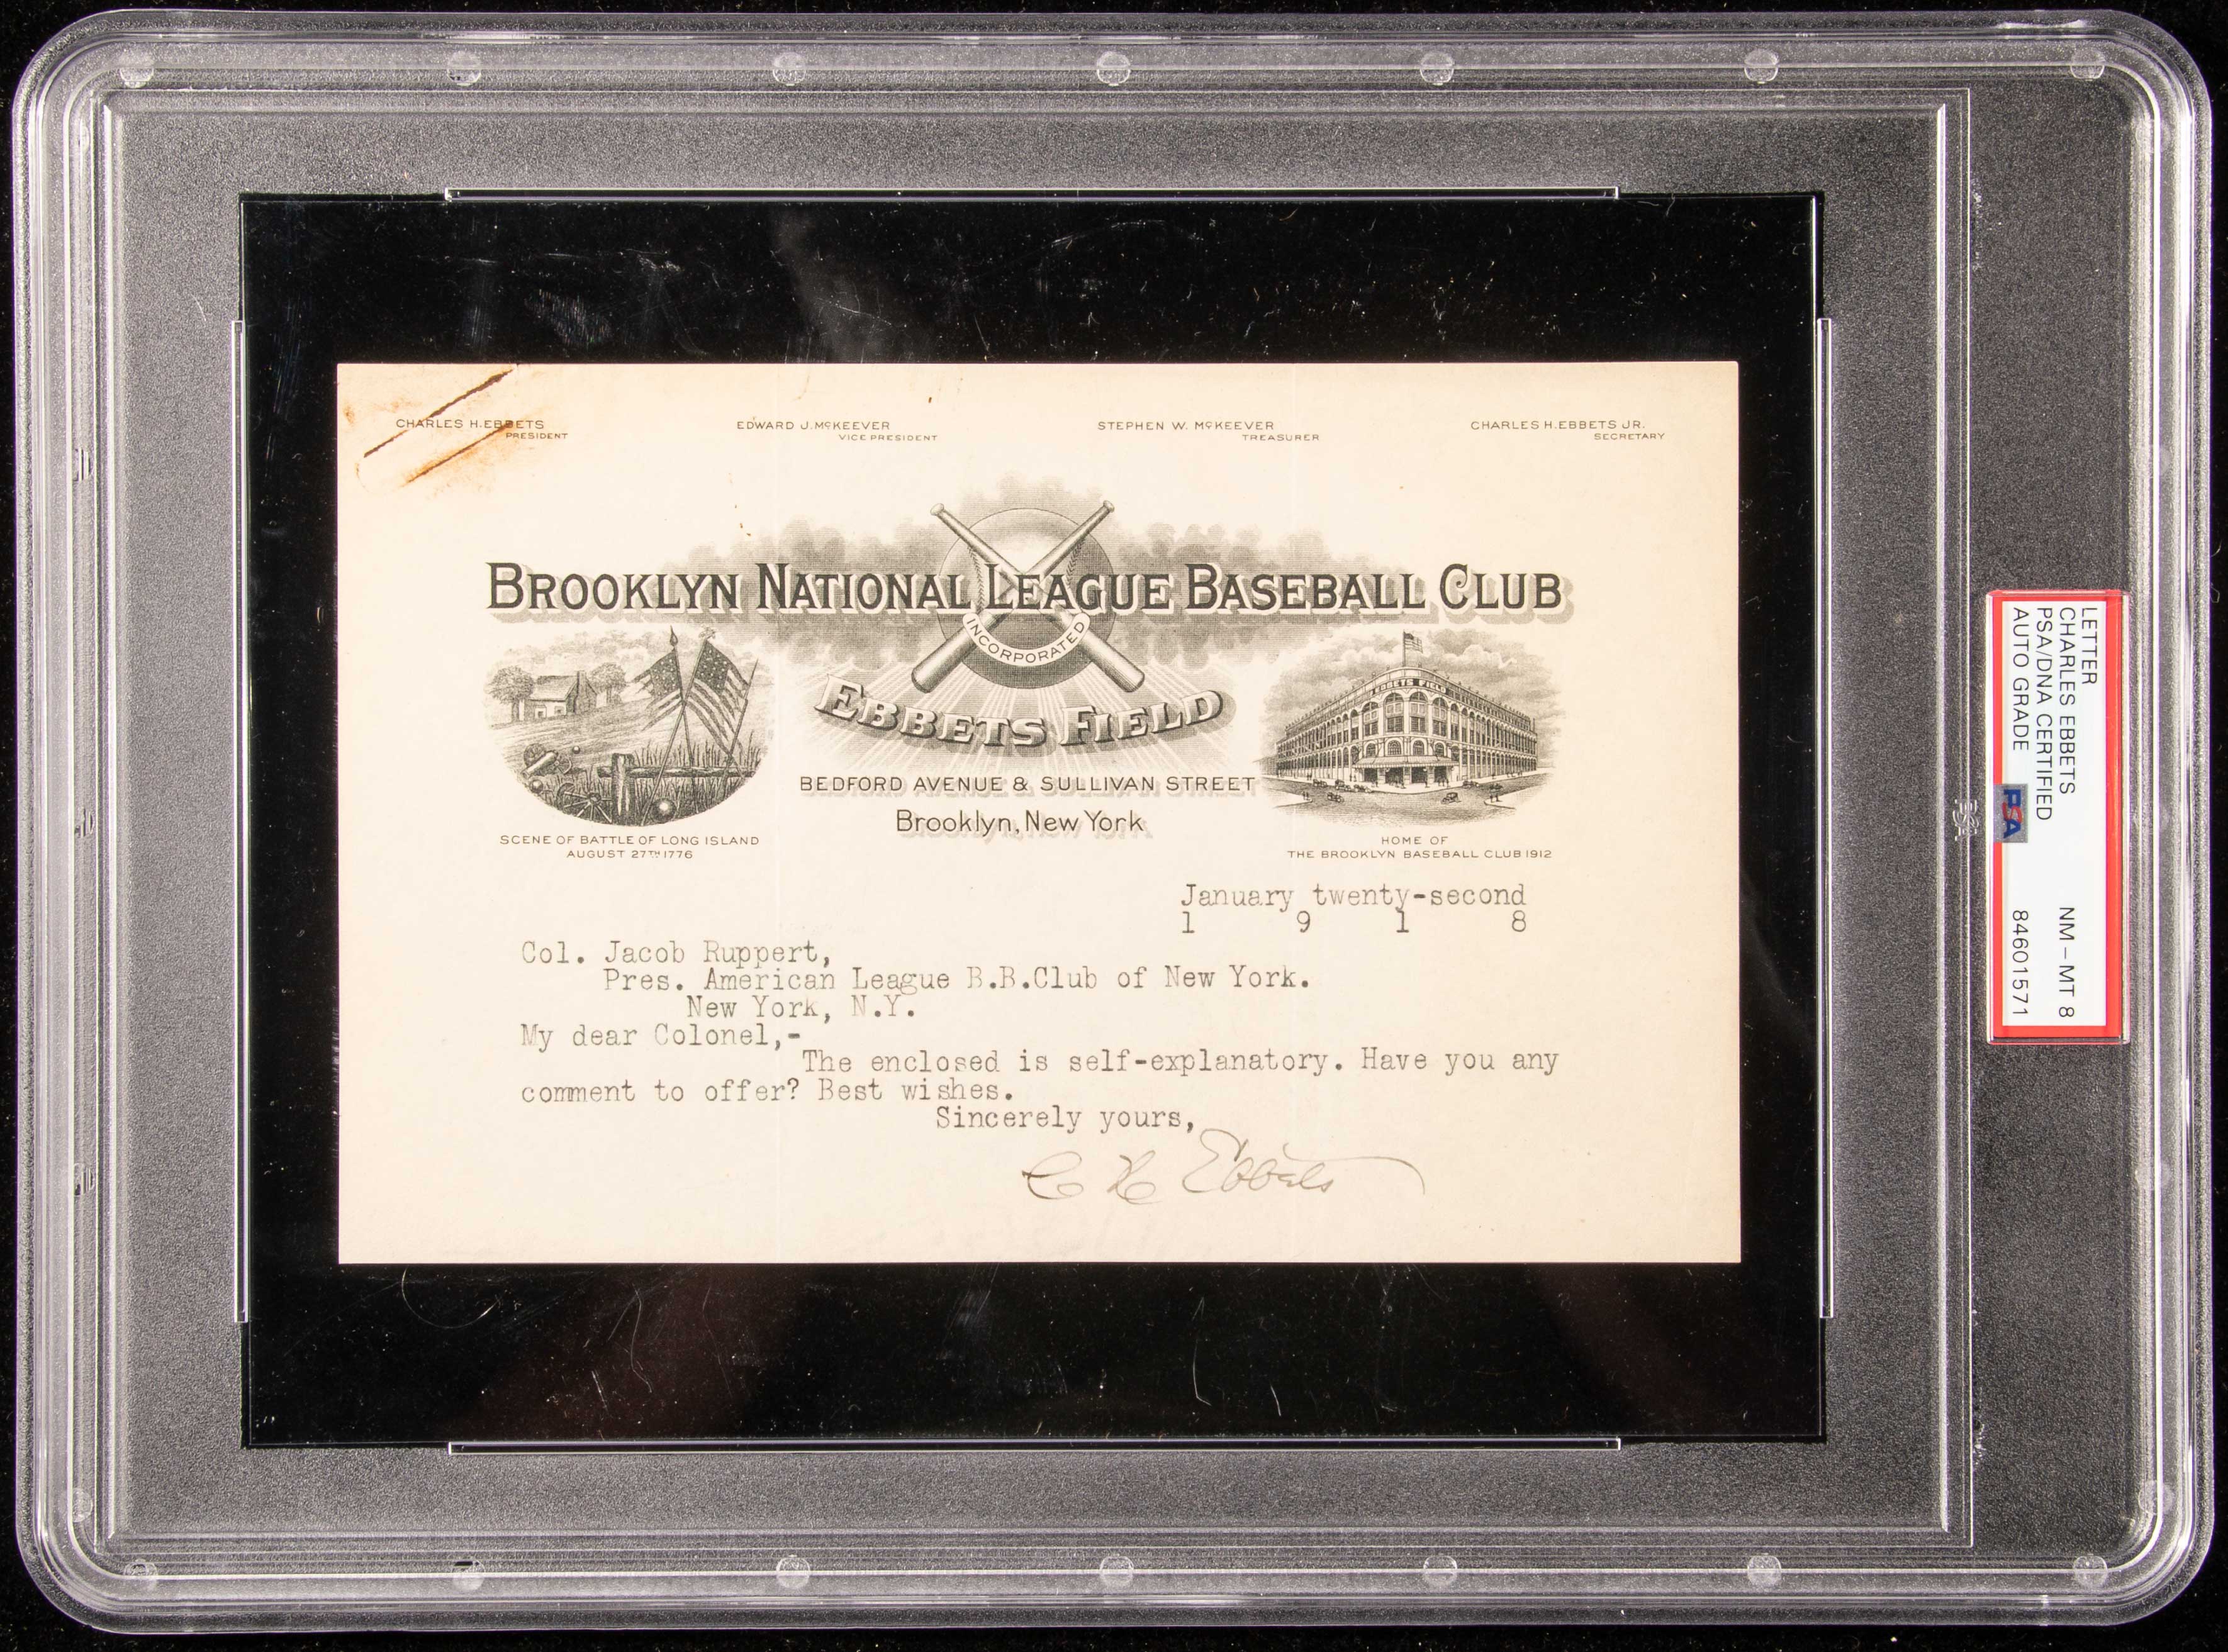 CHARLES H. EBBETS
PRESIDENT
EDWARD J. McKEEVER
VICE PRESIDENT
STEPHEN W. McKEEVER
TREASURER
CHARLES H. EBBETS JR.
SECRETARY
BROOKLYN NATIONAL LEAGUE BASEBALL CLUB
INCORPORATED
EBBETS FIELD
EBBETS FIELD
BEDFORD AVENUE & SULLIVAN STREET
Brooklyn, New York
SCENE OF BATTLE OF LONG ISLAND
AUGUST 27TH 1776
HOME OF
THE BROOKLYN BASEBALL CLUB 1912
January twenty-second
1 9 1 8
Col. Jacob Ruppert,
Pres. American League B.B.Club of New York.
New York, N.Y.
My dear Colonel,-
The enclosed is self-explanatory. Have you any
comment to offer? Best wishes.
Sincerely yours,
C H Ebbets
LETTER
CHARLES EBBETS NM-MT 8
PSA/DNA CERTIFIED
AUTO GRADE 84601571
PSA